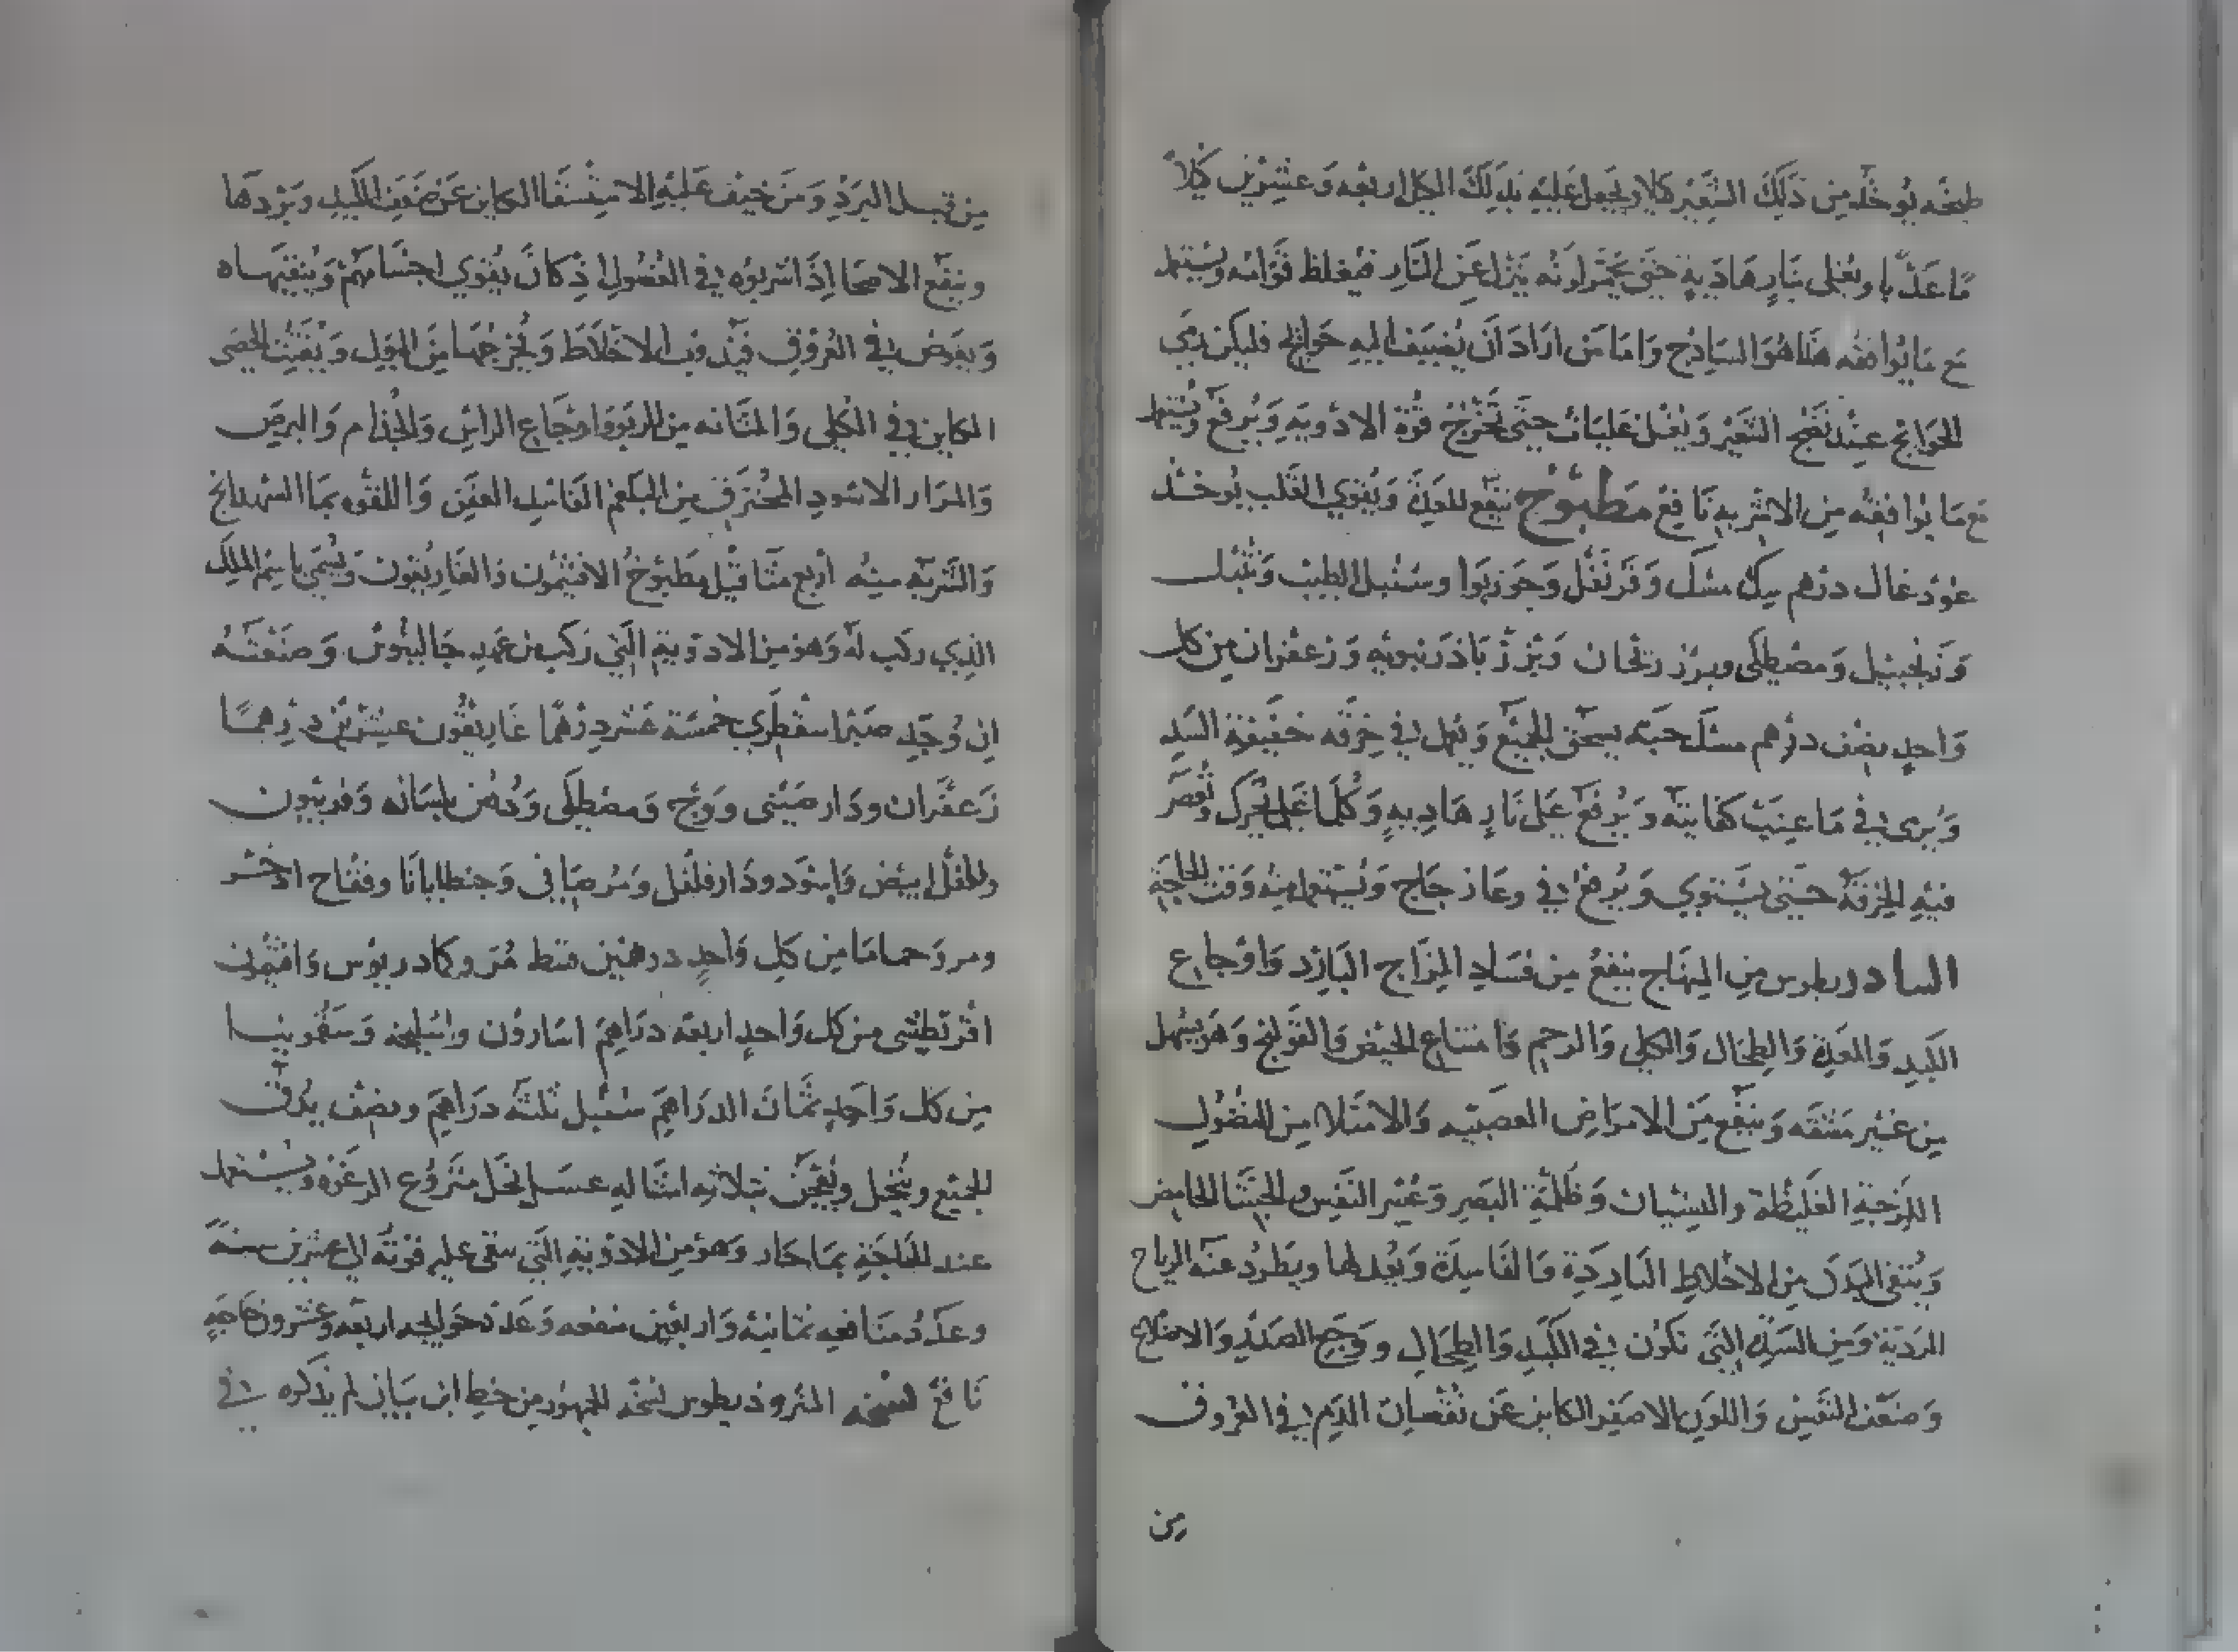 طبخه يوخذ من ذلك الشعير كيلا ويجعل عليه بذلك الكيل اربعه وعشرين كيلا
ما عذبا ويغلى بنار هادية حتى يحمر لونه ينزل عن النار فيغلظ قوامه ويستعمل
مع ما يوافقه هذا هو الساذج واما من اراد ان يضيف اليه حوائج فليكن رمي
الحوائج عند نضج الشعير ويغلى غليات حتى تخرج قوة الادويه ويرفع ويستعمل
مع ما يوافقه من الاشربه نافع مطبوخ ينفع للمعدة ويقوي القلب يوخذ
عود غال درهم سك مسك وقرنفل وجوزبوا وسنبل الطيب
وزنجبيل ومصطكى وبزر ريحان وبزر باذرنبويه وزعفران من كل
واحد نصف درهم مسك حبه يسحق الجميع ويعمل في خرقه خفيفة السد
ويرمى في ما عنب كفايته ويرفع على نار هاديه وكلما غلى يحرك وتعصر
فيه الخرقة حتى يستوي ويرفع في وعا زجاج ويستعمل منه وقت الحاجة
السادريطوس من المنهاج ينفع من فساد المزاج البارد واوجاع
الكبد والمعدة والطحال والكلى والرحم وامتناع الحيض والقولنج وهو يسهل
من غير مشقه وينفع من الامراض العصبيه والامتلا من الفضول
اللزجة الغليظة والنسيان وظلمة البصر وعسر النفس والجشا الحامض
وينقي البدن من الاخلاط الباردة والفاسدة ويعدلها ويطرد عنه الرياح
الردية ومن السدد التي تكون في الكبد والطحال ووجع الصدر والاضلاع
وضعف النفس واللون الاصفر الكاين عن نقصان الدم في العروق
من
من قبل البرد ومن خيف عليه الاستسقا الكاين عن ضعف الكبد وبردها
وينفع الاصحا اذا شربوه في الفصول اذ كان يقوي اجسامهم وينقيها
ويغوص في العروق فيذوب الاخلاط ويخرجها من البول ويفتت الحصى
الكاين في الكلى والمثانه من الربو واوجاع الراس والجذام والبرص
والمرار الاسود المحترق من البلغم الفاسد العفن واللقوه بما الشهدانج
والشربه منه أربع مثاقيل مطبوخ الافتيمون والغاريقون ويسمى باسم الملك
الذي ركب له وهو من الادوية التي ركب من عهد جالينوس وصنعته
ان يوخذ صبر اسقطري خمسة عشر درهما غاريقون عشرين درهما
زعفران ودار صيني ووج ومصطكى ودهن بلسانه وفربيون
وفلفل ابيض واسود ودارفلفل ومر صافي وجنطايانا وفقاح اذخر
ومر وحماما من كل واحد درهمين قسط مر وكمادريوس وافتيمون
اقريطشي من كل واحد اربعة دراهم اسارون واسليخه وسقمونيا
من كل واحد ثمان الدراهم سنبل ثلثة دراهم ونصف يدق
الجميع وينخل ويعجن بثلاثه امثاله عسل نحل منزوع الرغوه ويستعمل
عند الحاجة بما حار وهو من الادوية التي سقى عليه قوته الى عشرين سنة
وعدد منافعه ثمانية واربعين منفعه وعدة حوايجه اربعه وعشرون حاجه
نافع نسخه المثروذيطوس نسخه الجمهور من خط ابن بيان لم يذكره في